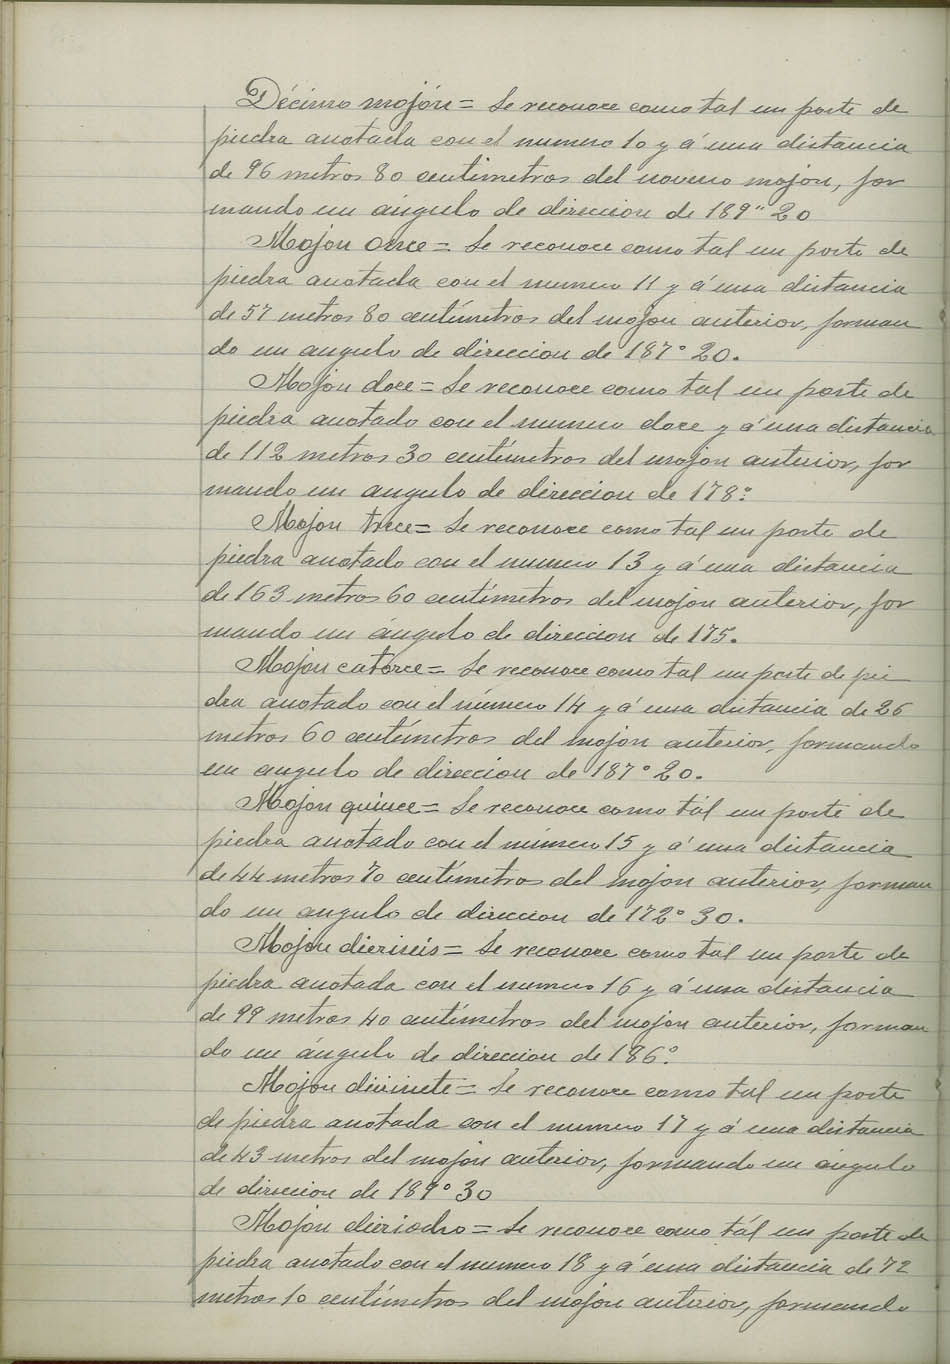 Décimo mojón = Se reconoce como tal un poste de
piedra anotada con el numero 10 y á una distancia
de 96 metros 80 centimetros del noveno mojon, for
mando un angulo de direccion de 189" 20
Mojon once = Se reconoce como tal un poste de
piedra anotada con el numero 11 y á una distancia
de 57 metros 80 centímetros del mojon anterior, forman
do un angulo de direccion de 187° 20.
Mojon doce = Se reconoce como tal un poste de
piedra anotado con el numero doce y á una distancia
de 112 metros 30 centímetros del mojon anterior, for
mando un angulo de direccion de 178°
Mojon trece = Se reconoce como tal un poste de
piedra anotado con el numero 13 y á una distancia
de 163 metros 60 centímetros del mojon anterior, for
mando un ángulo de direccion de 175.
Mojon catorce = Se reconoce como tal un poste de pie
dra anotado con el número 14 y á una distancia de 26
metros 60 centímetros del mojon anterior, formando
un angulo de direccion de 187° 20.
Mojon quince = Se reconoce como tál un poste de
piedra anotado con el número 15 y á una distancia
de 44 metros 70 centímetros del mojon anterior, forman
do un angulo de direccion de 172° 30.
Mojon dieciseis = Se reconoce como tal un poste de
piedra anotada con el numero 16 y á una distancia
de 99 metros 40 centímetros del mojon anterior, forman
do un ángulo de direccion de 186°
Mojon diecisiete = Se reconoce como tal un poste
de piedra anotada con el numero 17 y á una distancia
de 43 metros del mojon anterior, formando un ángulo
de direccion de 189° 30
Mojon dieciocho = Se reconoce como tál un poste de
piedra anotado con el numero 18 y á una distancia de 72
metros 10 centímetros del mojon anterior, formando